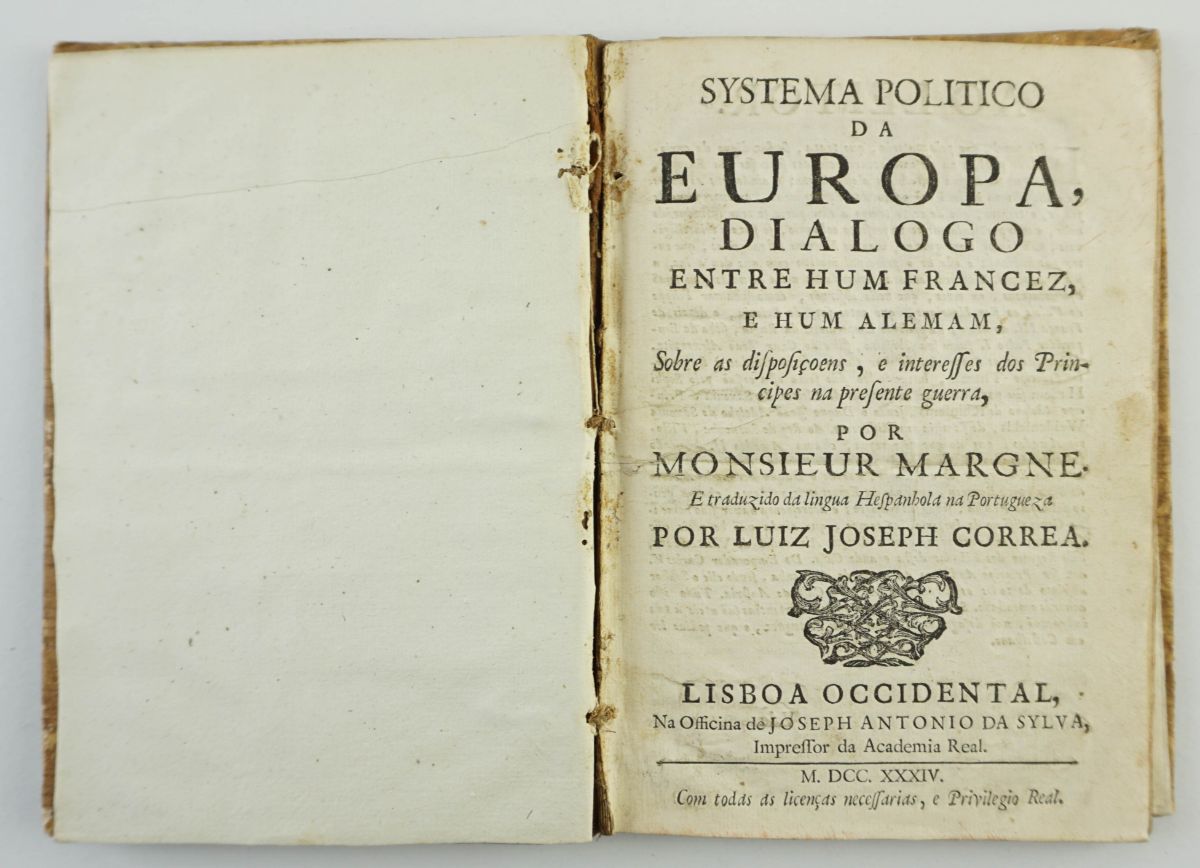 SYSTEMA POLITICO
DA
EUROPA,
DIALOGO
ENTRE HUM FRANCEZ,
E HUM ALEMAM,
Sobre as diſpoſiçoens, e intereſſes dos Prin-
cipes na preſente guerra,
POR
MONSIEUR MARGNE.
E traduzido da lingua Heſpanhola na Portugueza
POR LUIZ JOSEPH CORREA.
LISBOA OCCIDENTAL,
Na Officina de JOSEPH ANTONIO DA SYLVA,
Impreſſor da Academia Real.
M. DCC. XXXIV.
Com todas as licenças neceſſarias, e Privilegio Real.